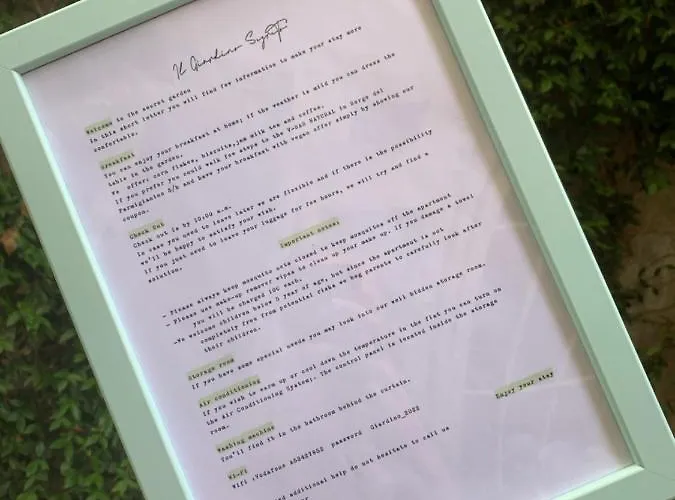 Il Giardino
Welcome to the secret garden
In this short letter you will find few information to make your stay more
comfortable.
Breakfast
You can enjoy your breakfast at home; if the weather is mild you can dress the
table in the garden.
We offer: corn flakes, biscuits, jam milk tea and coffee.
If you prefer you could walk few steps to the V-GAS NATURAL in Borgo del
Parmigianino 5/b and have your breakfast with vegan offer simply by showing our
coupon.
Check Out
Check out is by 10:00 a.m.
In case you need to leave later we are flexible and if there is the possibility
we'll be happy to satisfy your wish.
If you just need to leave your luggage for few hours, we will try and find a
solution.
Important notes:
- Please always keep mosquito nets closed to keep mosquitos off the apartment
- Please use make-up remover wipes to clean up your make up. if you damage a towel
you will be charged 10€ each.
-We welcome children above 5 years of age, but since the apartment is not
completely free from potential risks we ask parents to carefully look after
their children.
Storage room
If you have some special needs you may look into our well hidden storage room.
Air conditioning
If you wish to warm up or cool down the temperature in the flat you can turn on
the Air Conditioning System. The control panel is located inside the storage
room.
Washing machine
You'll find it in the bathroom behind the curtain.
Enjoy your stay
Wi-Fi
Wifi :Vodafone password Giardino_2022
additional help do not hesitate to call us